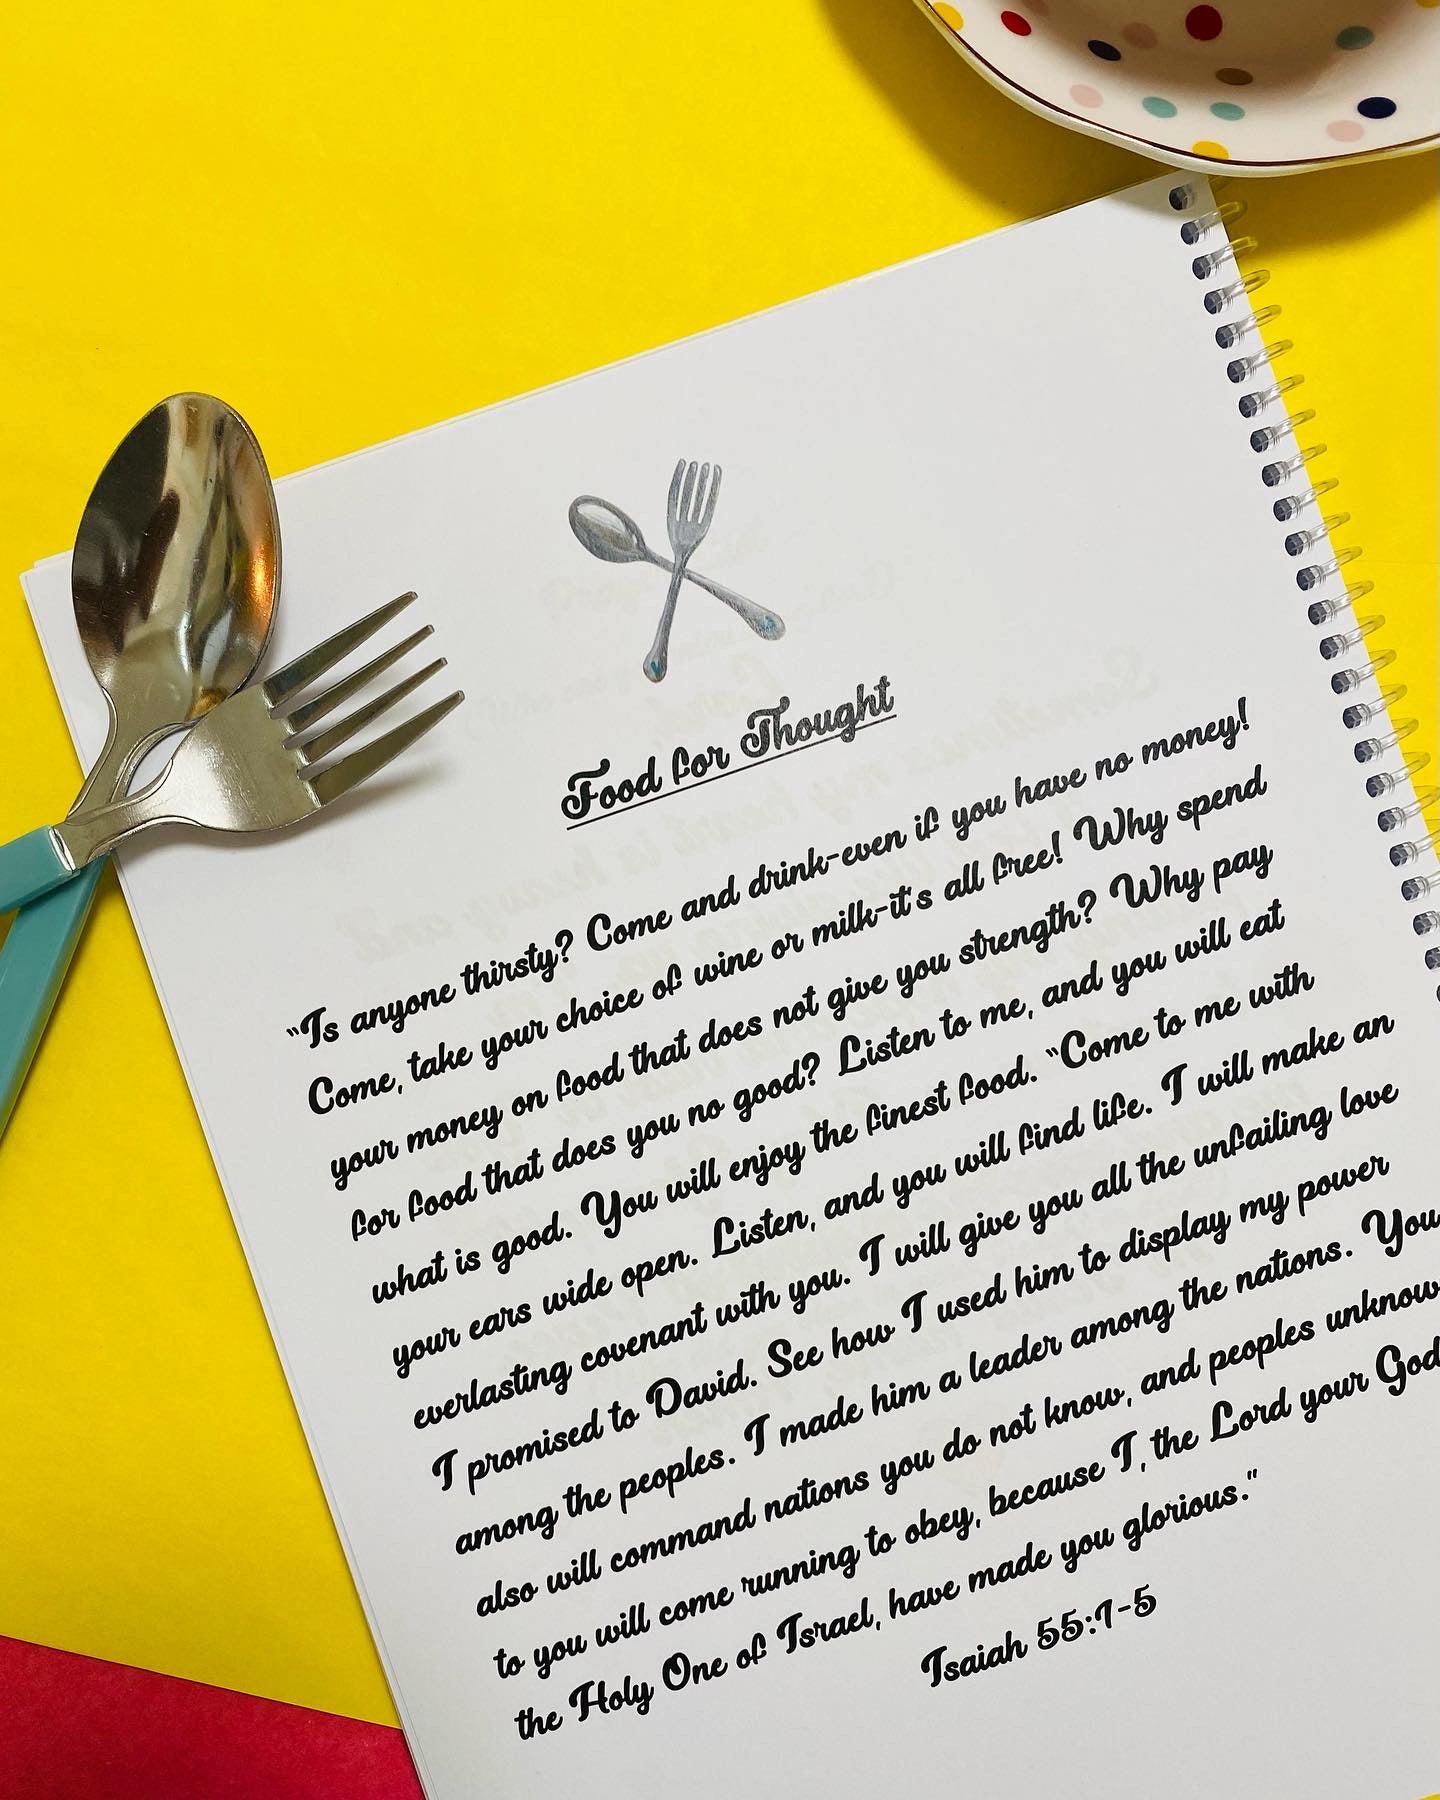 Food for Thought
"Is anyone thirsty? Come and drink-even if you have no money!
Come, take your choice of wine or milk-it's all free! Why spend
your money on food that does not give you strength? Why pay
for food that does you no good? Listen to me, and you will eat
what is good. You will enjoy the finest food. "Come to me with
your ears wide open. Listen, and you will find life. I will make an
everlasting covenant with you. I will give you all the unfailing love
I promised to David. See how I used him to display my power
among the peoples. I made him a leader among the nations. You
also will command nations you do not know, and peoples unknow
to you will come running to obey, because I, the Lord your God
the Holy One of Israel, have made you glorious."
Isaiah 55:1-5